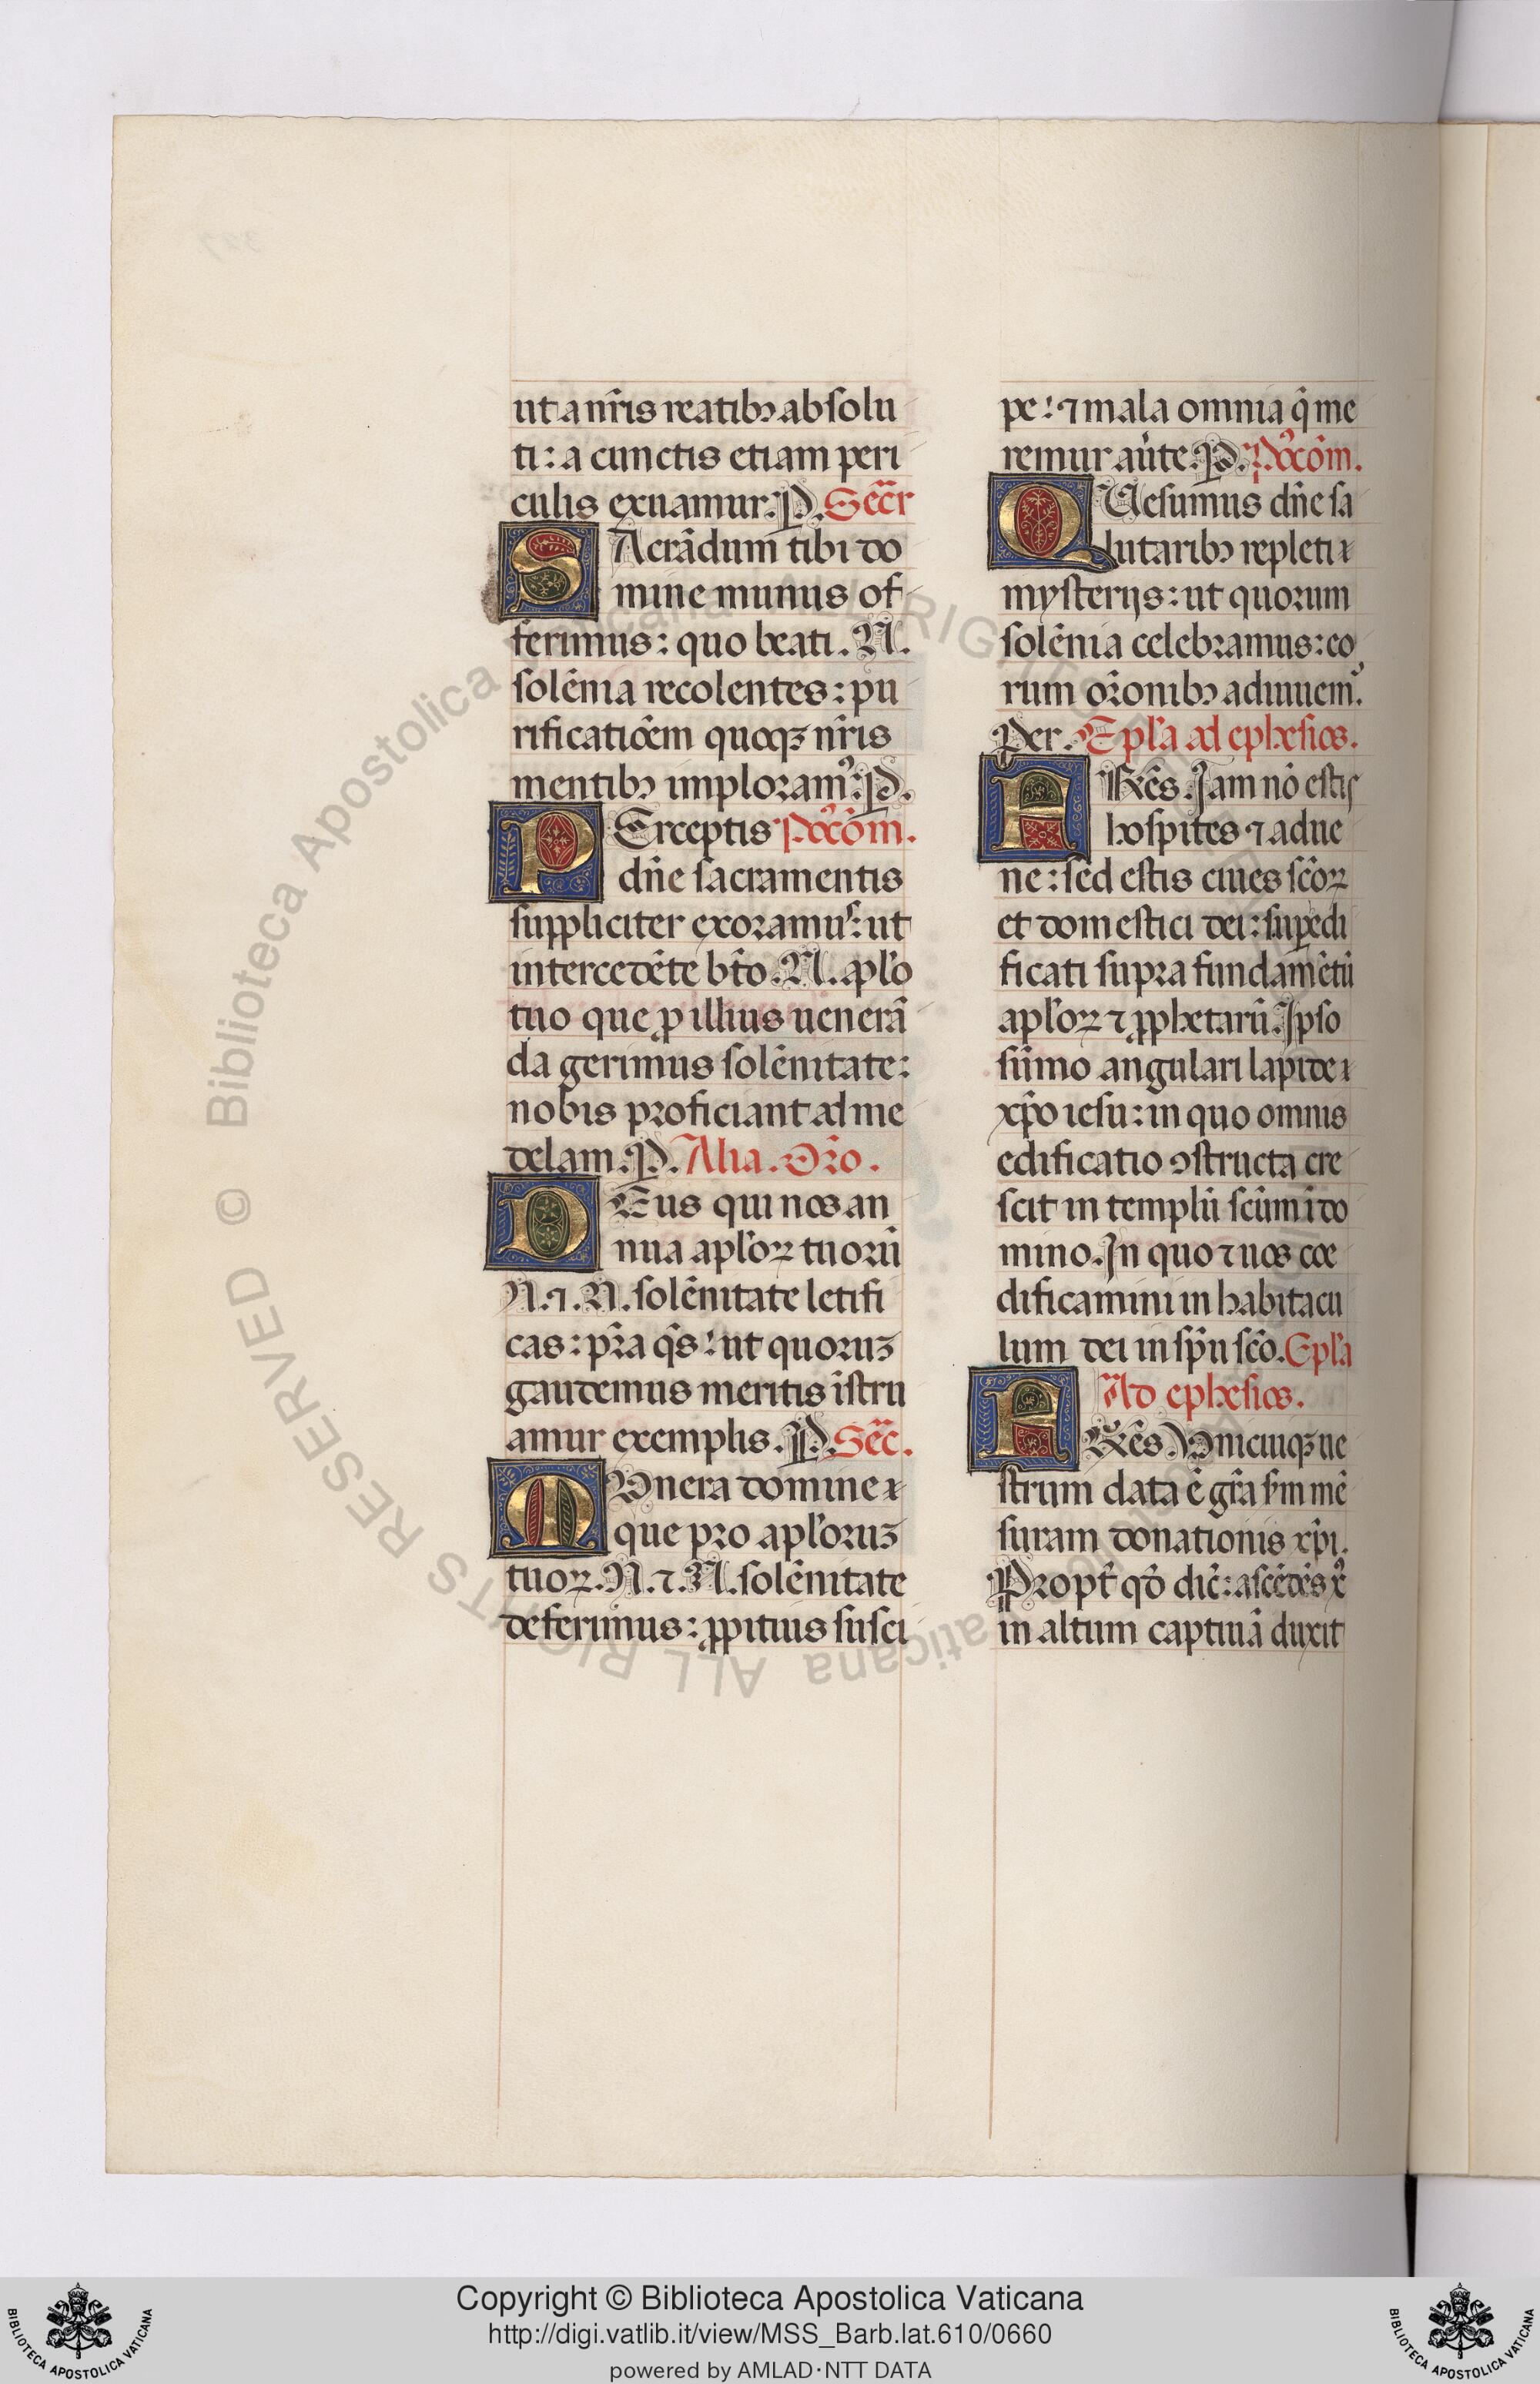 ut a nr̃is reatibꝫ absolu
ti: a cunctis etiam peri
culis exuamur. P. Secr̃
SAcrãdum tibi do
mine munus of
ferimus: quo beati. N.
solẽnia recolentes: pu
rificatiõem quoqꝫ nr̃is
mentibꝫ imploramꝰ: P.
PErceptis Poꝰcõm.
dñe sacramentis
suppliciter exoramus: ut
intercedẽte bt̃o. N. apl̃o
tuo que ꝓ illius uenerã
da gerimus solẽnitate:
nobis proficiant ad me
delam. P. Alia. Or̃o.
DEus qui nos an
nua apl̃oꝝ tuorũ
N. ⁊. N. solẽnitate letifi
cas: pr̃a q̃s: ut quoruꝫ
gaudemus meritis ĩstru
amur exemplis. P. Sec̃.
MUnera domine
que pro apl̃oruꝫ
tuoꝝ. N. ⁊. N. solẽnitate
deferimus: ꝓpitius susci
pe: ⁊ mala omnia q̃ me
remur aũte. P. Poꝰcõm.
QUesumus dñe sa
lutaribꝫ repleti
mysterijs: ut quorum
solẽnia celebramus: eo
rum or̃onibꝫ adiuuemꝰ.
Per. Epl̃a ad ephesios.
FRẽs. Jam nõ estis
hospites ⁊ adue
ne: sed estis ciues sc̃oꝝ
et domestici dei: suꝑedi
ficati supra fundamẽtũ
apl̃oꝝ ⁊ ꝓphetarũ. Ipso
sũmo angulari lapide
xp̃o iesu: in quo omnis
edificatio ꝯstructa cre
scit in templũ sc̃um ĩ do
mino. In quo ⁊ uos coe
dificamini in habitacu
lum dei in sp̃u sc̃o. Epl̃a
Ad ephesios.
FRẽs. Unicuiqꝫ ue
strum data ẽ gr̃a s̃m mẽ
suram donationis xp̃i.
Propt̃ qd̃ dic̃: ascẽdẽs xp̃s
in altum captiuã duxit
© Biblioteca Apostolica Vaticana ALL RIGHTS RESERVED
Copyright © Biblioteca Apostolica Vaticana
http://digi.vatlib.it/view/MSS_Barb.lat.610/0660
powered by AMLAD·NTT DATA
BIBLIOTECA APOSTOLICA VATICANA
BIBLIOTECA APOSTOLICA VATICANA